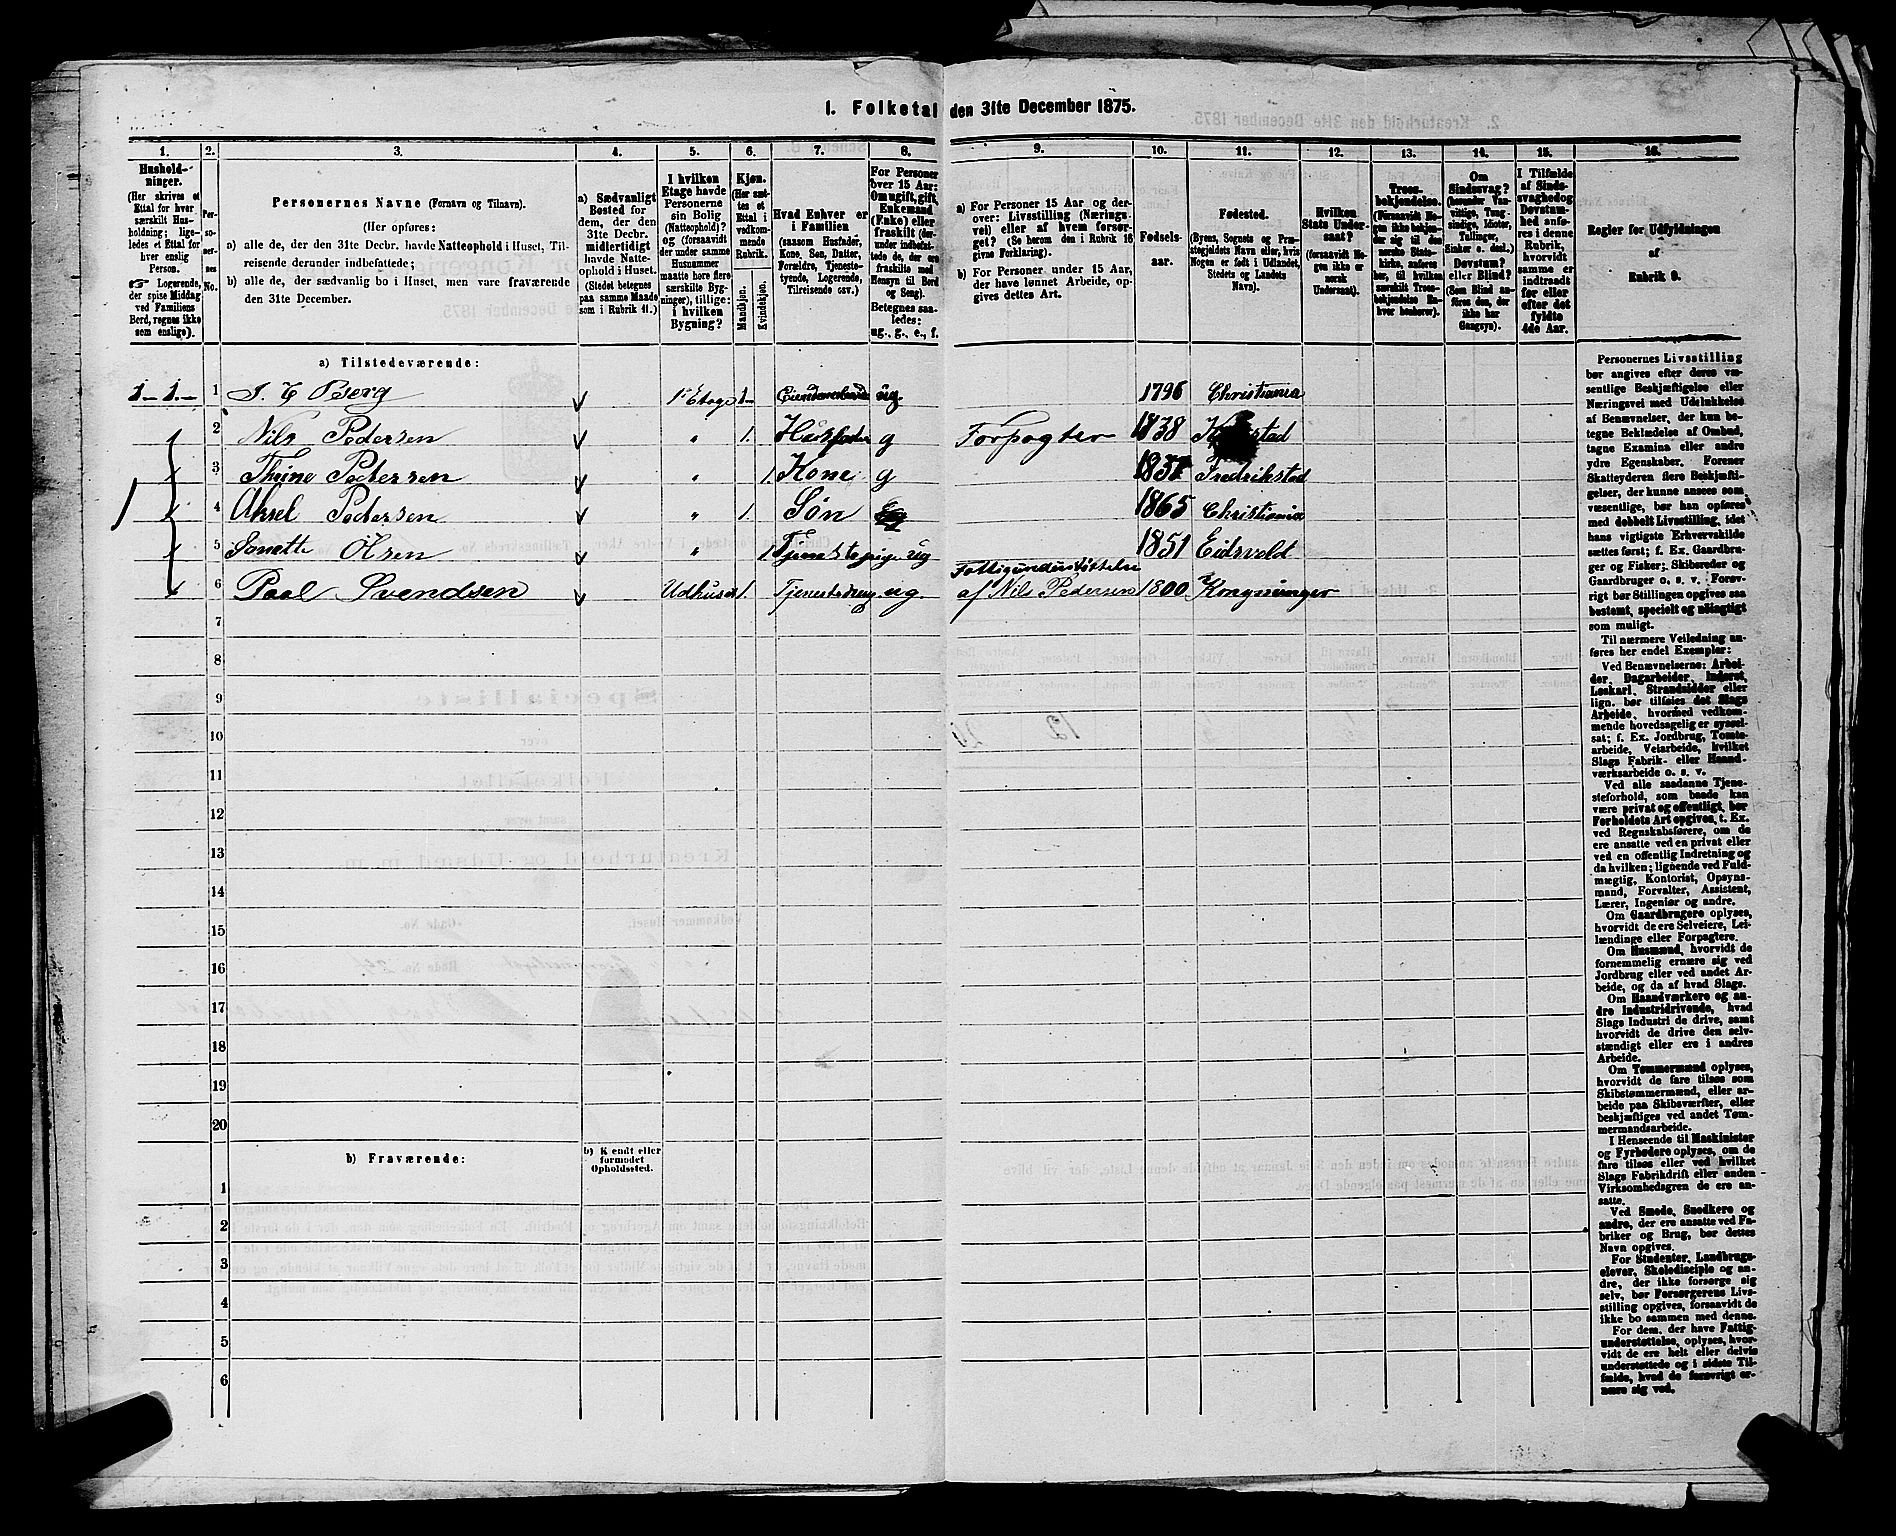 1. Folketal den 31te December 1875.
1. 2. 3. 4. 5. 6. 7. 8. 9. 10. 11. 12. 13. 14. 15. 16.
Hushold-
ninger.
(Her skrives et
Ettal for hver
særskilt Hus-
holdning; lige-
ledes et Ettal for
hver enslig
Person.
☞ Logerende,
der spise Middag
ved Familiens
Berd, regnes ikke
som enslige).
Per-
so-
ner-
nes
No.
Personernes Navne (Fornavn og Tilnavn).
(Her opføres:
a) alle de, der den 31te Decbr. havde Natteophold i Huset, Til-
reisende derunder indbefattede;
b) alle de, der sædvanlig bo i Huset, men vare fraværende
den 31te December.
a) Sædvanligt
Bosted for
dem, der den
31te Decbr.
midlertidigt
havde Natte-
ophold i Huset.
(Stedet betegnes
paa samme Maade
som i Rubrik 11.)
I hvilken
Etage havde
Personerne
sin Bolig
(Natteophold)?
og (forsaavidt
der under samme
Husnummer
maatte høre flere
særskilte Byg-
ninger), tillige:
i hvilken
Bygning?
Kjøn.
(Her sæt-
tes et
Ettal i
vedkom-
mende
Rubrik.
Mandkjøn.
Kvindekjøn.
Hvad Enhver er
i Familien
(saasom Husfader,
Kone, Søn, Datter,
Forældre, Tjeneste-
tyende, Logerende,
Tilreisende osv.)
For Personer
over 15 Aar:
Om ugift, gift,
Enkemand
(Enke) eller
fraskilt (der-
under indbefat-
tede de, der ere
fraskilte med
Hensyn til Bord
og Seng).
Betegnes saa-
ledes:
ug., g., e., f.
a) For Personer 15 Aar og der-
over: Livsstilling (Nærings-
vei) eller af hvem forsør-
get? (Se herom den i Rubrik 16
givne Forklaring).
b) For Personer under 15 Aar,
der have lønnet Arbeide, op-
gives dettes Art.
Fødsels-
aar.
Fødested.
(Byens, Sognets og Præ-
stegjeldets Navn eller, hvis
Nogen er født i Udlandet,
Stedets og Landets
Navn).
Hvilken
Stats Under-
saat?
(forsaavidt No-
gen ikke er
norsk
Undersaat).
Troes-
bekjendelse.
(Forsaavidt No-
gen ikke beken-
der sig til den
norske Stats-
kirke, anføres
her, til hvilken
særskilt Troes-
bekjendelse En-
hver henhører).
Om
Sindssvag?
(herunder Van-
vittige, Tung-
sindige, Idioter,
Tullinger,
Sinker o. desl.)
Døvstum?
eller Blind?
(Som Blind an-
føres den, der
ikke har
Gangsyn).
I Tilfælde
af Sinds-
svaghed og
Døvstum-
hed anfø-
res i denne
Rubrik,
hvorvidt
samme er
indtraadt
før eller
efter det
fyldte
4de Aar.
Regler for Udfyldningen
af
Rubrik 9.
a) Tilstedeværende:
1–1– 1 J. C Bjerg 1ᵉ Etage 1 ug 1796 Christiania
2 Nils Pedersen " 1. Husfader g Forpagter 1838
3 Thrine Pedersen " 1 Kone g Fredrikstad
4 Aksel Pedersen " 1. Søn 1865 Christiania
5 Olsen " 1 Tjenestepige ug 1851 Eidsvold
Fattigunderstøttelse
6 Paal Svendsen Udhuset 1. ug. af Nils Pedersen 1800 Kongsvinger
7
8
9
10
11
12
13
14
15
16
17
18
19
20
b) Fraværende:
b) Kjendt eller
formodet
Opholdssted.
1
2
3
4
5
6
Personernes Livsstilling
bør angives efter deres væ-
sentlige Beskjæftigelse eller
Næringsvei med Udelukkelse
af Benævnelser, der kun be-
tegne Beklædelse af Ombud,
tagne Examina eller andre
ydre Egenskaber. Forener
Skatteyderen flere Beskjæfti-
gelser, der kunne ansees som
væsentlige, bør han opføres
med dobbelt Livsstilling, idet
hans vigtigste Erhvervskilde
sættes først; f. Ex. Gaardbru-
ger og Fisker; Skibsreder og
Gaardbruger o. s. v. Forøv-
rigt bør Stillingen opgives saa
bestemt, specielt og nøiagtigt
som muligt.
Til nærmere Veiledning an-
føres her endel Exempler:
Ved Benævnelserne: Arbei-
der, Dagarbeider, Inderst,
Løskarl, Strandsidder eller
lign. bør tilføies det Slags
Arbeide, hvormed vedkom-
mende hovedsagelig er syssel-
sat; f. Ex. Jordbrug, Tomte-
arbeide, Veiarbeide, hvilket
Slags Fabrik- eller Haand-
værksarbeide o. s. v.
Ved alle saadanne Tjene-
steforhold, som baade kan
være privat og offentligt, bør
Forholdets Art opgives, t. Ex.
ved Regnskabsførere, om de
ere ansatte ved en privat eller
ved en offentlig Indretning og
da hvilken; lignende ved Fuld-
mægtig, Kontorist, Opsyns-
mand, Forvalter, Assistent,
Lærer, Ingeniør og andre.
Om Gaardbrugere oplyses,
hvorvidt de ere Selveiere, Lei-
lændinge eller Forpagtere.
Om Husmænd, hvorvidt de
fornemmelig ernære sig ved
Jordbrug eller ved andet Ar-
beide, og da af hvad Slags.
Om Haandværkere og an-
dre Industridrivende, hvad
Slags Industri de drive, samt
hvorvidt de drive den selv-
stændigt eller ere i andres
Arbeide.
Om Tømmermænd oplyses,
hvorvidt de fare tilsøs som
Skibstømmermænd, eller ar-
beide paa Skibsværfter, eller
beskjæftiges ved andet Tøm-
mermandsarbeide.
I Henseende til Maskinister
og Fyrbødere oplyses, om de
fare tilsøs eller ved hvilket
Slags Fabrikdrift eller anden
Virksomhedsgren de ere an-
satte.
Ved Smede, Snedkere og
andre, der ere ansatte ved Fa-
briker og Brug, bør dettes
Navn opgives.
For Studenter, Landbrugs-
elever, Skoledisciple og an-
dre, der ikke forsørge sig
selv, bør Forsørgerens Livs-
stilling opgives, forsaavidt de
ikke bo sammen med denne.
For dem, der have Fattig-
understøttelse, oplyses, hvor-
vidt de ere helt eller delvis
understøttede og i sidste Til-
fælde, hvad de forøvrigt er-
nære sig ved.